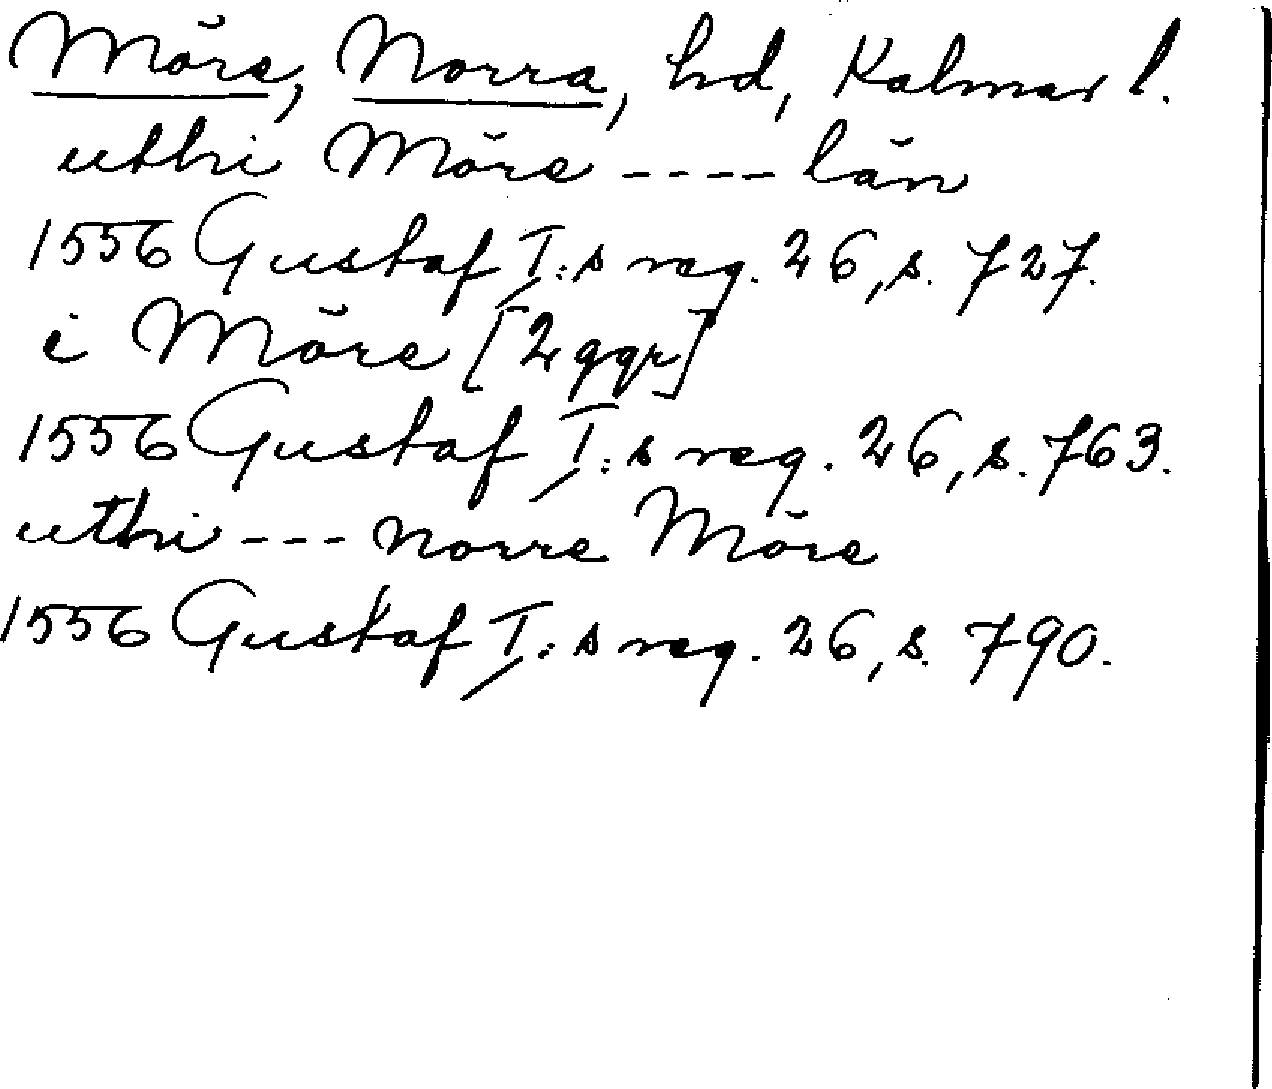 Möre, Norra, hd, Kalmar l.
uthi Möre ---- län
1556 Gustaf I:s reg. 26, s. 727.
i Möre [2 ggr]
1556 Gustaf I:s reg. 26, s. 763.
uthi --- Norre Möre
1556 Gustaf I:s reg. 26, s. 790.